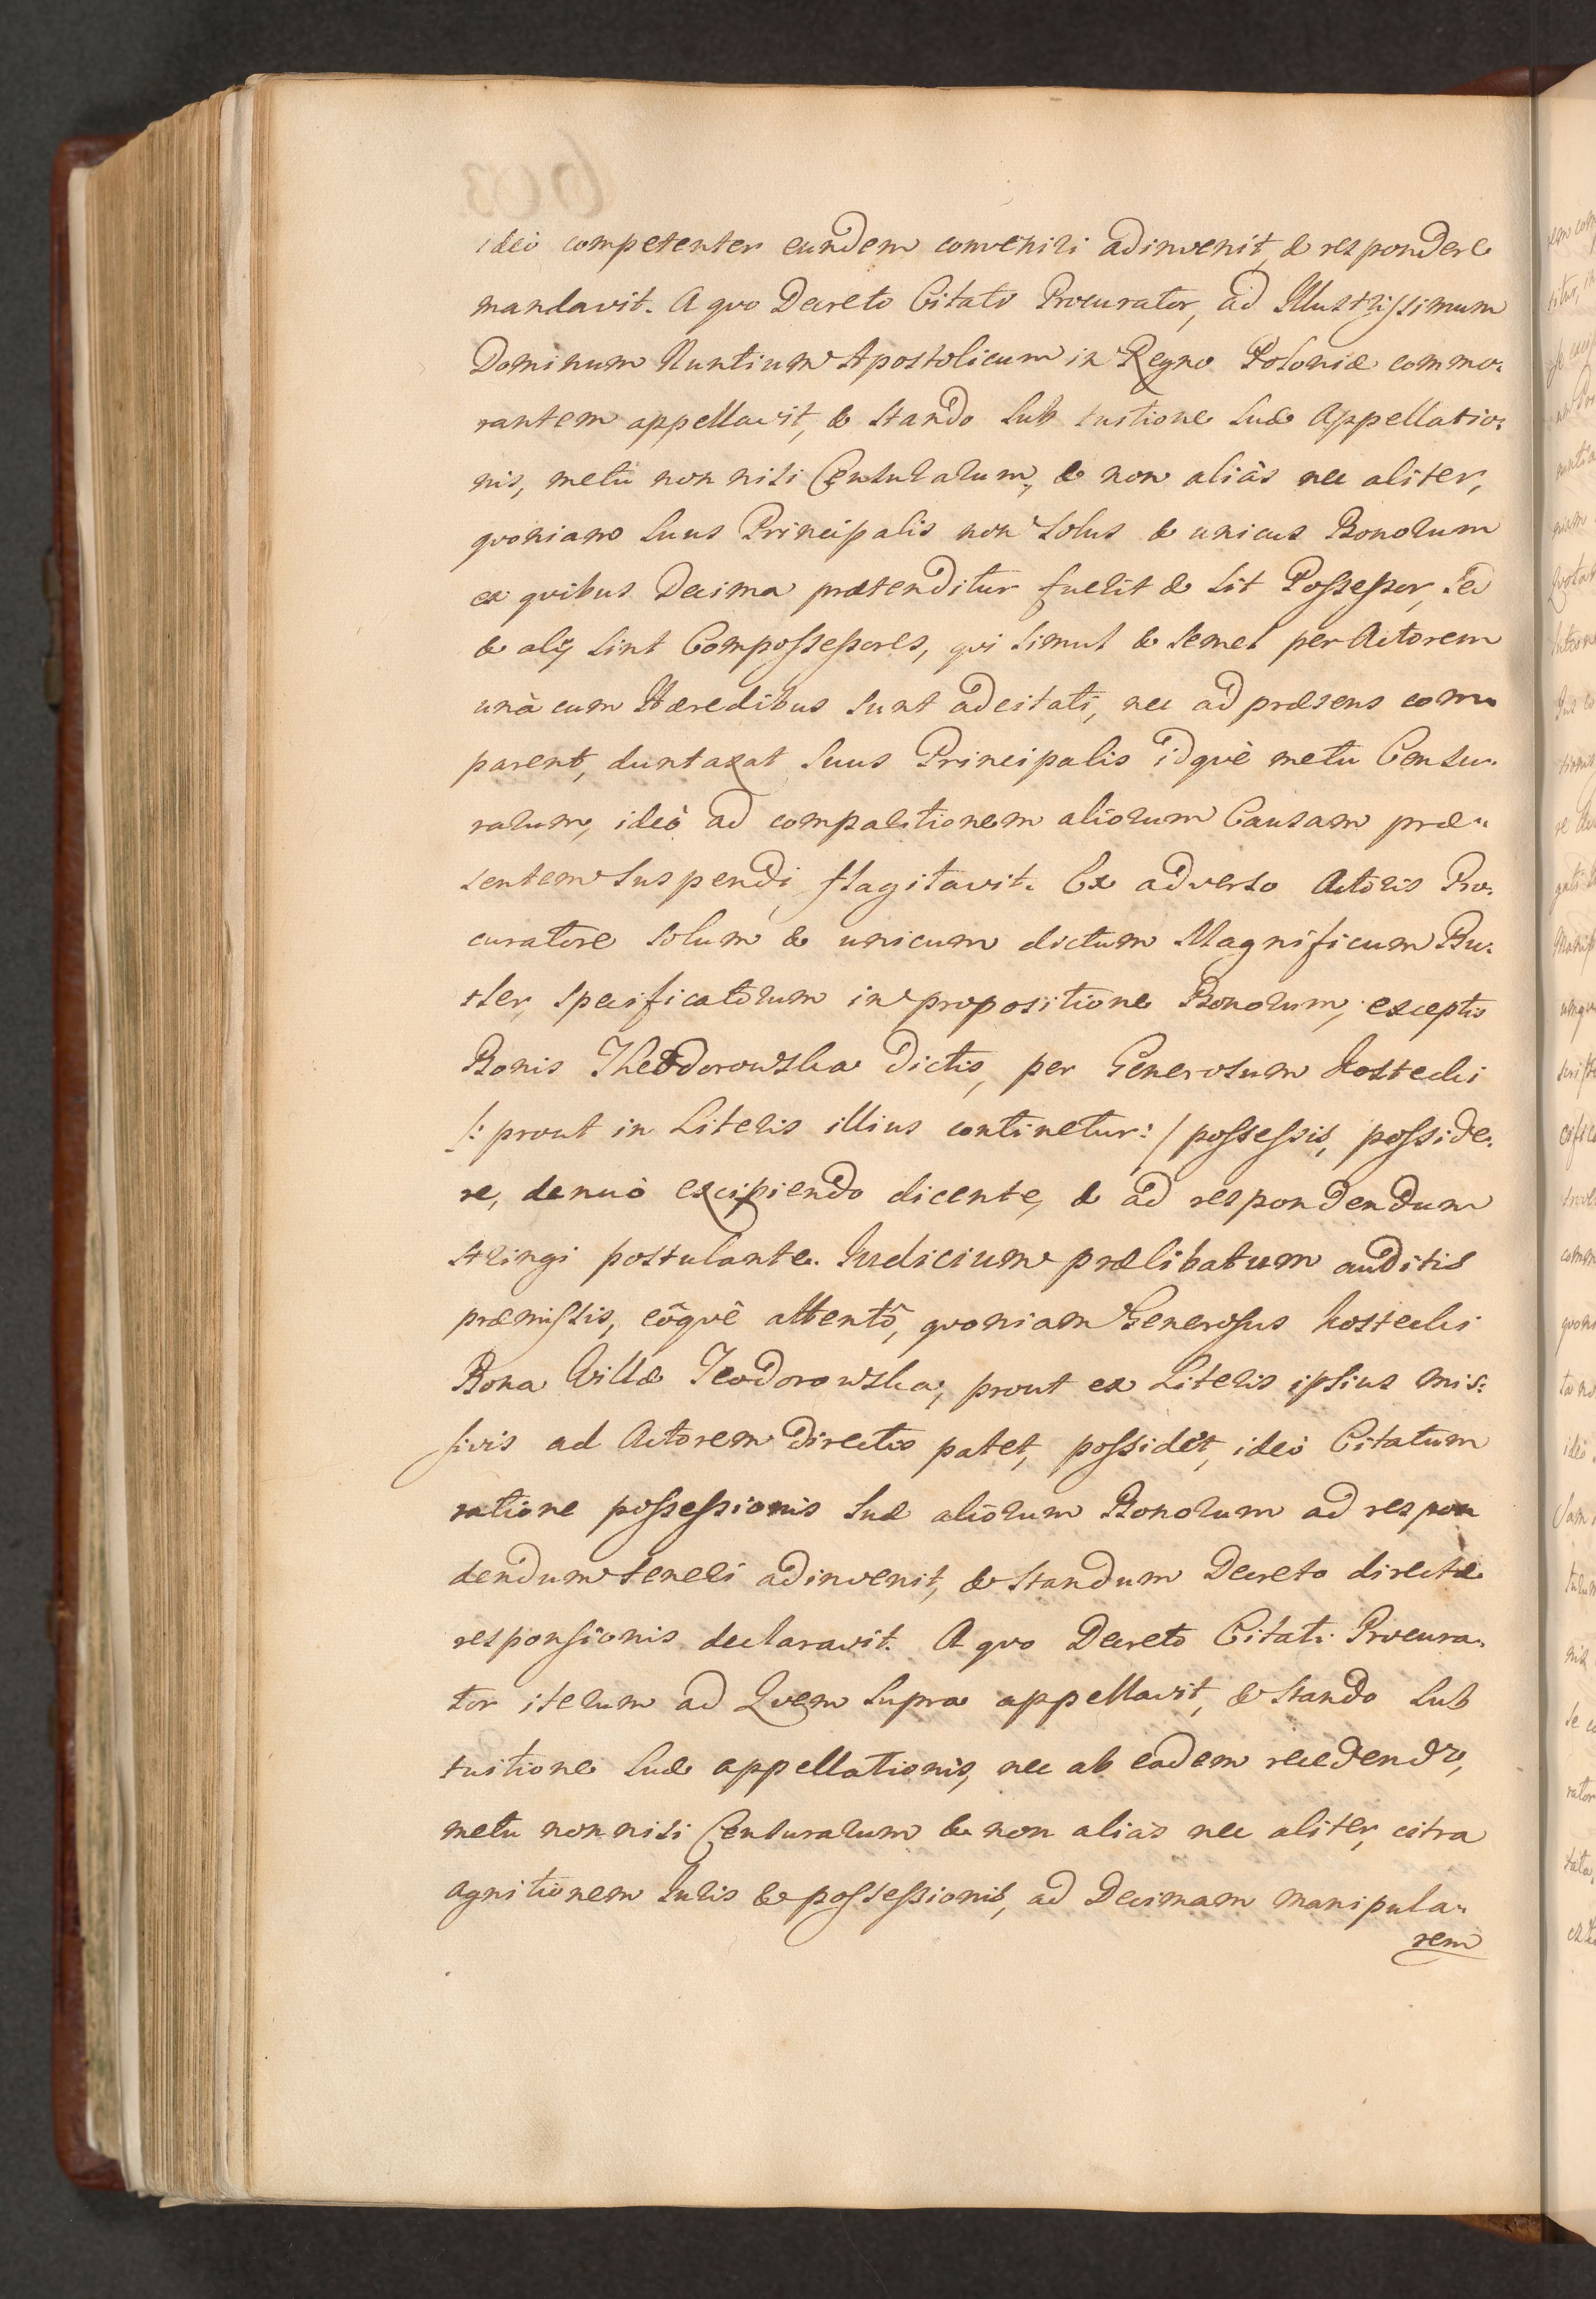 ideò competenter eundem conveniri adinvenit, & respondere
mandavit. A quo Decreto Citati Procurator, ad Illustrissimum
Dominum Nuntium Apostolicum in Regno Poloniæ commo:
rantem appellavit, & stando sub tuitione suæ Appellatio:
nis, metù non nisi Censurarum, & non aliàs nec aliter,
quoniam suus Principalis non solus & unicus Bonorum
ex quibus Decima prætenditur fuerit & sit Possessor, sed
& alij sint Compossessores, qui simul & semel per Actorem
unà cum Hæredibus sunt adcitati, nec ad præsens com
parent, duntaxat suus Principalis idquè metu Censu:
rarum, ideò ad comparitionem aliorum Causam præ:
sentem suspendi flagitavit. Ex adverso Actoris Pro:
curatore solum & unicum dictum Magnificum Bu:
tler, specificatorum in propositione Bonorum, exceptis
Bonis Theodorowska dictis, per Generosum Kostecki
/: prout in Literis illius continetur: / possessis, posside:
re, denuò excipiendo dicente, & ad respondendum
stringi postulante. Iudicium prælibatum auditis
præmissis, eôquê attentô, quoniam Generosus Kostecki
Bona Villæ Teodorowska, prout ex Literis ipsius mis:
sivis ad Actorem directis patet, possidet, ideò Citatum
ratione possessionis suæ aliorum Bonorum ad respon
dendum teneri adinvenit, & standum Decreto directæ
responsionis declaravit. A quo Decreto Citati Procura:
tor iterum ad Quem supra appellavit, & stando sub
tuitione suæ appellationis, nec ab eadem recedendo,
metu non nisi Censurarum & non aliàs nec aliter, citra
agnitionem Iuris & possessionis, ad Decimam manipula:
rem